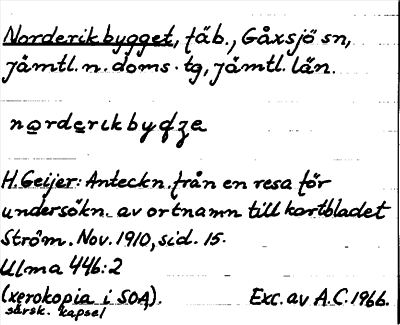 Norderikbygget, fäb., Gåxsjö sn,
Jämtl. n. doms. tg, Jämtl. län.
norderikbydze
H. Geijer: Anteckn. från en resa för
undersökn. av ortnamn till kartbladet
Ström. Nov. 1910, sid. 15.
Ulma 446:2
(xerokopia i SOA). Exc. av A.C. 1966.
särsk. kapsel